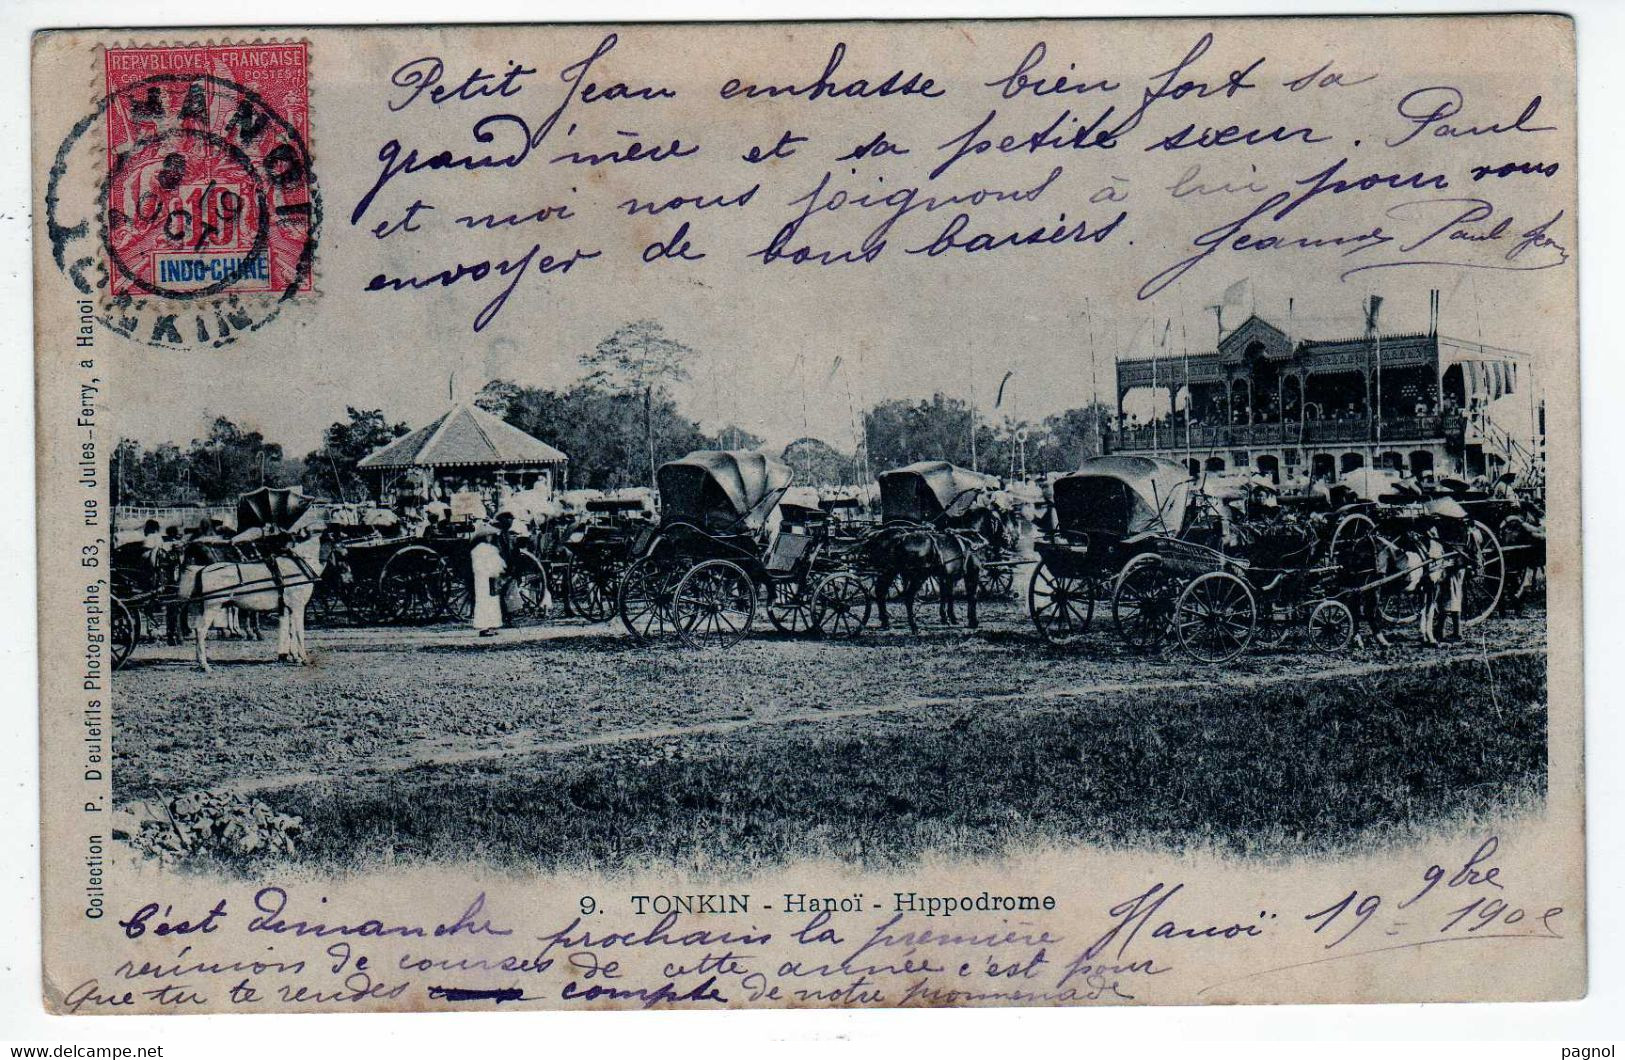 REPVBLIQVE FRANÇAISE
COL POSTES
10
INDO-CHINE
HANOI
TONKIN
8
OCT
Petit Jean embrasse bien fort sa
grand'mère et sa petite sœur. Paul
et moi nous joignons à lui pour vous
envoyer de bons baisers. Jeanne Paul Jean
Collection P. Dieulefils Photographe, 53, rue Jules-Ferry, à Hanoi
9. TONKIN - Hanoï - Hippodrome
Hanoï 19 9bre 1902
C'est Dimanche prochain la première
réunion de courses de cette année c'est pour
que tu te rendes compte de notre promenade
delcampe.net
pagnol